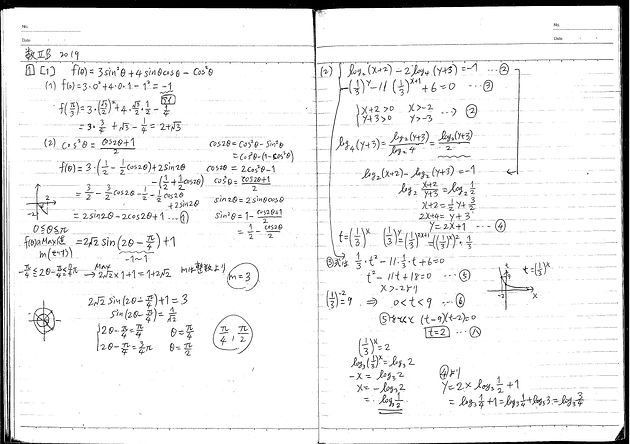 No.
Date
数ⅡB 2019
1 [1] f(θ) = 3sin²θ + 4sinθcosθ − cos²θ
(1) f(0) = 3·0² + 4·0·1 − 1² = −1
f(π/3) = 3·(√3/2)² + 4·√3/2·1/2 − 1/4
= 3·3/4 + √3 − 1/4 = 2+√3
(2) cos²θ = cos2θ+1/2
cos2θ = cos²θ − sin²θ
= cos²θ − (1−cos²θ)
cos2θ = 2cos²θ − 1
cos²θ = cos2θ+1/2
sin2θ = 2sinθcosθ
sin²θ = 1 − cos2θ+1/2
= 1/2 − cos2θ/2
f(θ) = 3·(1/2 − 1/2cos2θ) + 2sin2θ
− (1/2 + 1/2cos2θ)
= 3/2 − 3/2cos2θ − 1/2 − 1/2cos2θ + 2sin2θ
= 2sin2θ − 2cos2θ + 1 …①
0≦θ≦π
= 2√2 sin(2θ − π/4) + 1
−1~1
→ Max 2√2×1+1 = 1+2√2
mは整数より
m = 3
2√2 sin(2θ − π/4) + 1 = 3
sin(2θ − π/4) = 1/√2
2θ − π/4 = π/4 θ = π/4
2θ − π/4 = 3/4π θ = π/2
π/4, π/2
No.
Date
(2) log₂(x+2) − 2log₄(y+3) = −1 …②
(1/3)^y − 11(1/3)^(x+1) + 6 = 0 …③
x+2>0 x>−2
y+3>0 y>−3 …②
log₄(y+3) = log₂(y+3)/log₂4 = log₂(y+3)/2
log₂(x+2) − log₂(y+3) = −1
log₂ x+2/y+3 = log₂ 1/2
x+2 = 1/2y + 3/2
2x+4 = y+3
y = 2x+1 …④
t = (1/3)^x (1/3)^y = (1/3)^(2x+1) = ((1/3)^x)²·1/3
③式は 1/3·t² − 11·1/3·t + 6 = 0
t² − 11t + 18 = 0 …⑤
t = (1/3)^x
x > −2より
(1/3)^−2 = 9 ⇒ 0<t<9 …⑥
⑤をとくと (t−9)(t−2) = 0
t = 2 …ハ
(1/3)^x = 2
log₃(1/3)^x = log₃2
−x = log₃2
x = −log₃2
= log₃ 1/2
④より
y = 2×log₃ 1/2 + 1
= log₃ 1/4 + 1 = log₃ 1/4 + log₃3 = log₃ 3/4